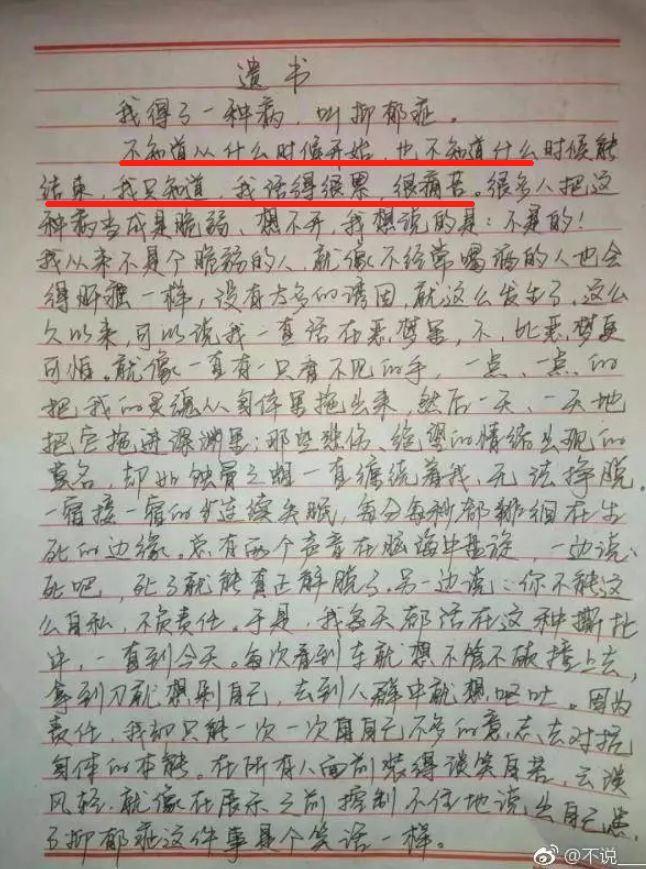 遗书
我得了一种病，叫抑郁症。
不知道从什么时候开始，也不知道什么时候能
结束，我只知道，我活得很累，很痛苦。很多人把这
种病当成是脆弱、想不开，我想说的是：不是的！
我从来不是个脆弱的人，就像不经常喝酒的人也会
得肝癌一样，没有太多的诱因，就这么发生了。这么
久以来，可以说我一直活在恶梦里，不，比恶梦更
可怕。就像一直有一只看不见的手，一点、一点的
把我的灵魂从身体里拖出来，然后一天、一天地
把它拖进深渊里；那些悲伤、绝望的情绪出现的
莫名，却如蚀骨之蛆一直缠绕着我，无法挣脱。
一宿接一宿的连续失眠，每分每秒都徘徊在生
死的边缘。总有两个声音在脑海中盘旋，一边说：
死吧，死了就能真正解脱了。另一边说：你不能这
么自私，不负责任。于是，我每天都活在这种撕扯
中，一直到今天。每次看到车就想不管不顾撞上去，
拿到刀就想剁自己，去到人群中就想呕吐。因为
责任，我却只能一次一次用自己不多的意志去对抗
身体的本能。在所有人面前装得谈笑自若，云淡
风轻。就像在展示之前控制不住地说出自己患
了抑郁症这件事是个笑话一样。
@不说__